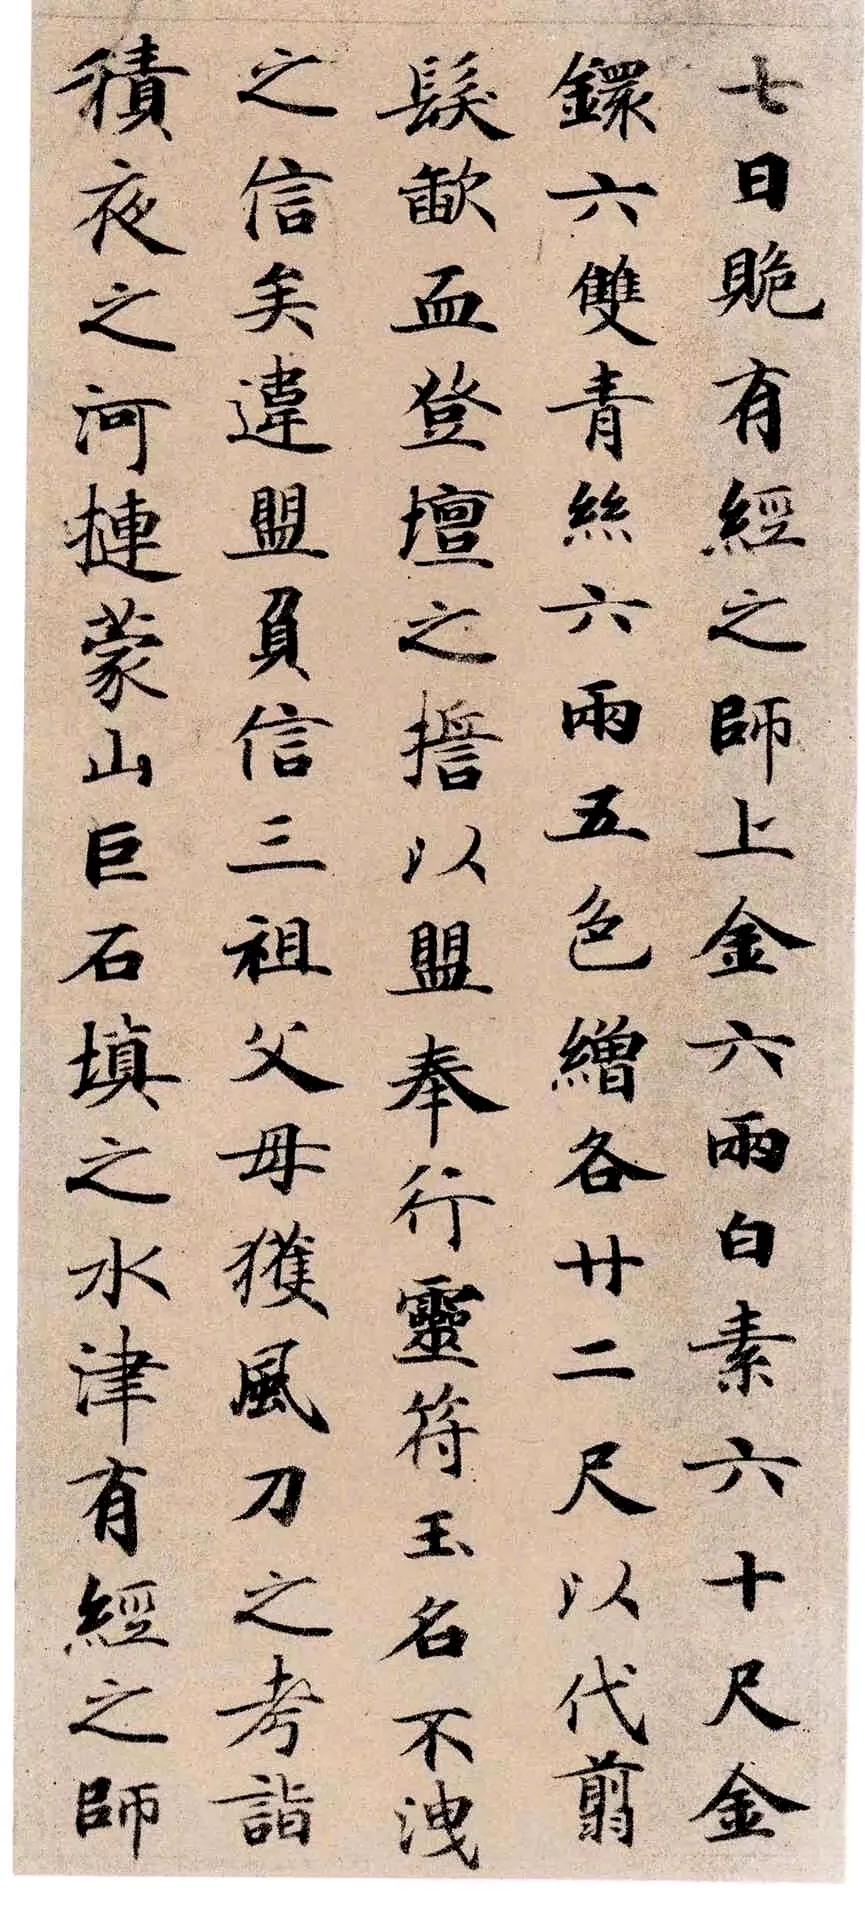 七日賜有經之師上金六兩白素六十尺金
鐶六雙青絲六兩五色繒各廿二尺以代翦
髮歃血登壇之擔以盟奉行靈符玉名不洩
之信矣違盟負信三祖父母獲風刀之考詣
積夜之河摙蒙山巨石填之水津有經之師